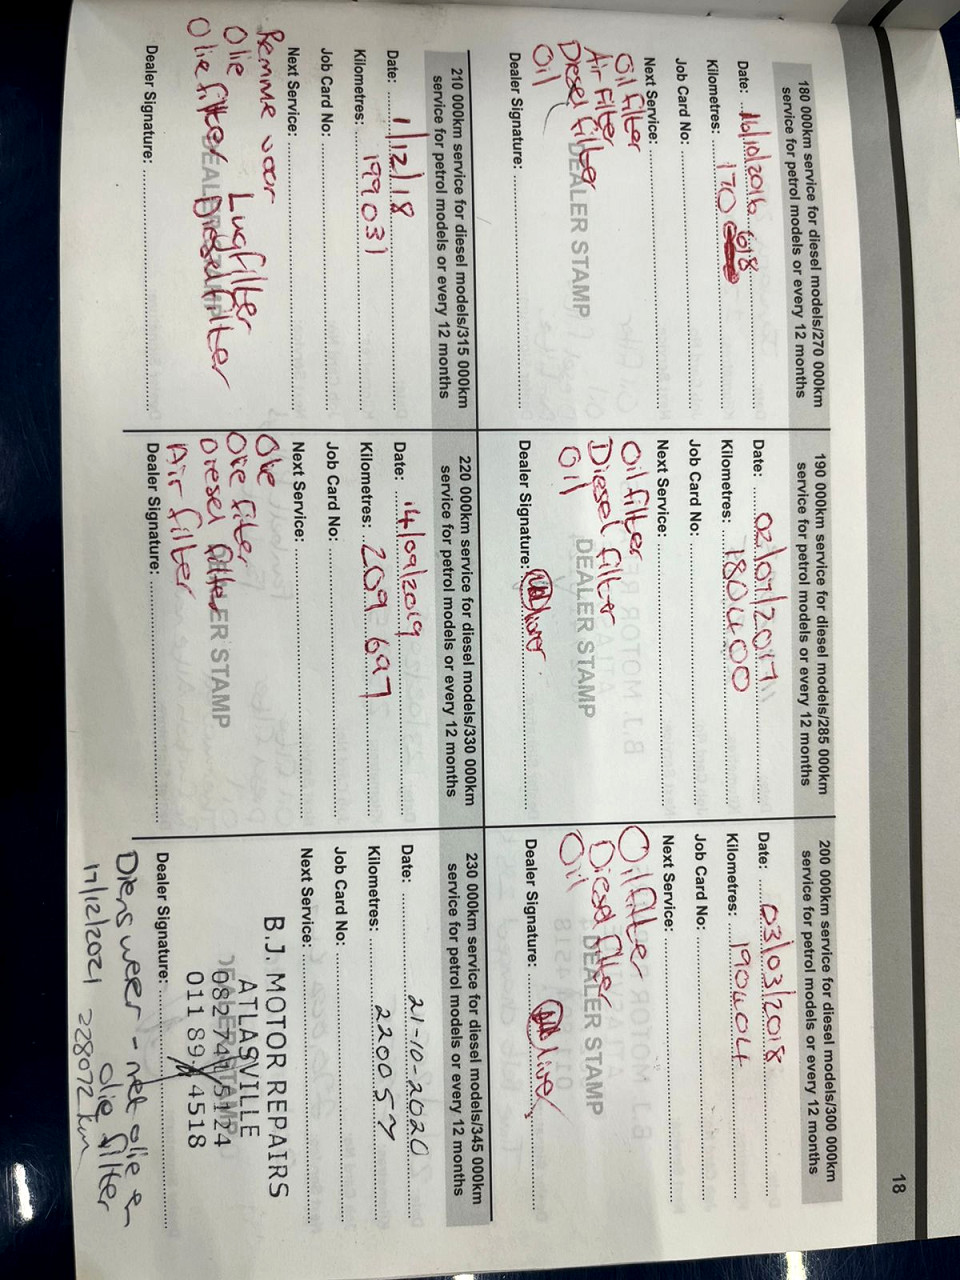 18
180 000km service for diesel models/270 000km
service for petrol models or every 12 months
Date: 16/10/2016
Kilometres: 170 618
Job Card No:
Next Service:
Oil filter
Air Filter
Diesel filter
Oil
DEALER STAMP
Dealer Signature:
190 000km service for diesel models/285 000km
service for petrol models or every 12 months
Date: 02/07/2017
Kilometres: 180400
Job Card No:
Next Service:
Oil filter
Diesel filter
Oil
DEALER STAMP
Dealer Signature:
200 000km service for diesel models/300 000km
service for petrol models or every 12 months
Date: 03/03/2018
Kilometres: 190404
Job Card No:
Next Service:
Oil filter
Diesel filter
Oil
DEALER STAMP
Dealer Signature:
210 000km service for diesel models/315 000km
service for petrol models or every 12 months
Date: 1/12/18
Kilometres: 199031
Job Card No:
Next Service:
Remme voor
Olie Lugfilter
Oliefilter Dieselfilter
DEALER STAMP
Dealer Signature:
220 000km service for diesel models/330 000km
service for petrol models or every 12 months
Date: 14/09/2019
Kilometres: 209 697
Job Card No:
Next Service:
Olie
Olie filter
Diesel filter
Air filter
DEALER STAMP
Dealer Signature:
230 000km service for diesel models/345 000km
service for petrol models or every 12 months
Date: 21-10-2020
Kilometres: 220057
Job Card No:
Next Service:
B.J. MOTOR REPAIRS
ATLASVILLE
DEALER STAMP
082 741 5124
011 894 4518
Dealer Signature:
Diens weer - net olie en
olie filter
17/12/2021 228072 km